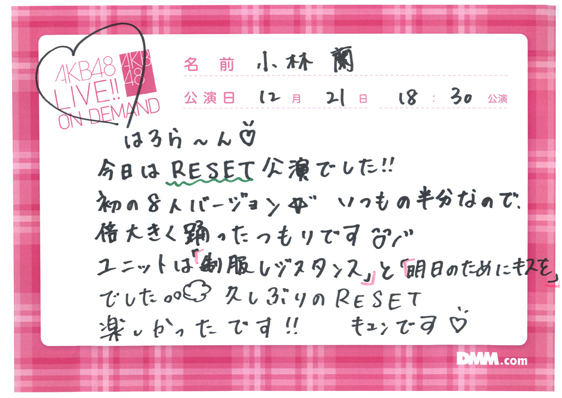 AKB48
LIVE!!
ON DEMAND
AKB
48
名前 小林 蘭
公演日 12月 21日 18:30 公演
はろら〜ん♡
今日は RESET 公演でした!!
初の8人バージョン いつもの半分なので、
倍大きく踊ったつもりです
ユニットは「制服レジスタンス」と「明日のためにキスを」
でした 久しぶりの RESET
楽しかったです!! キュンです♡
DMM.com